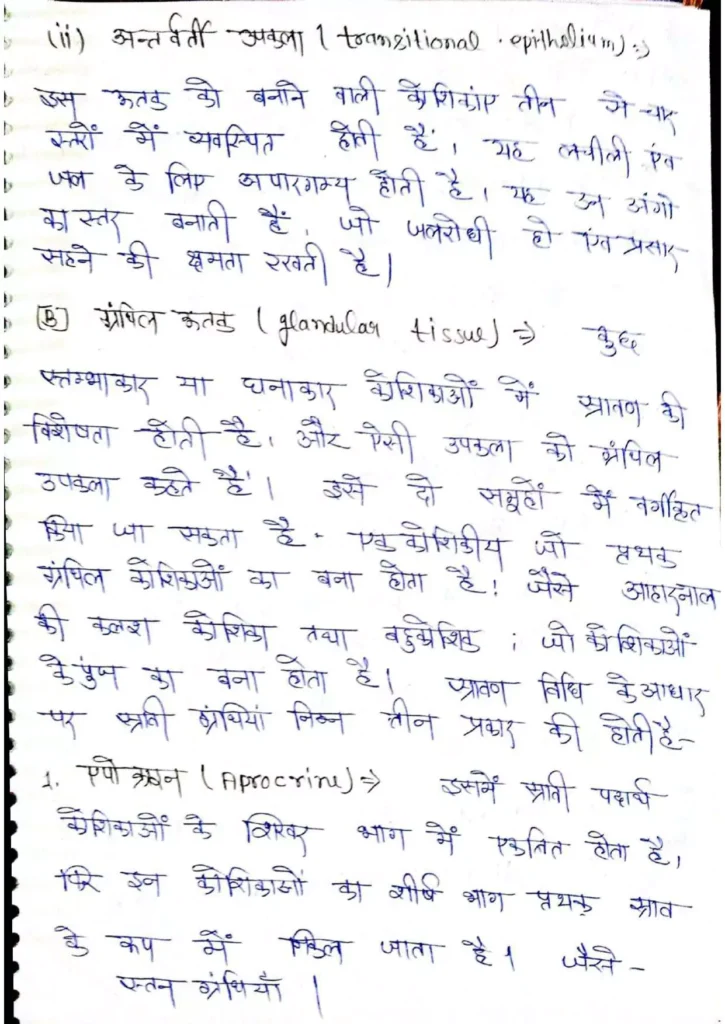 (ii) अन्तर्वर्ती उपकला (transitional epithelium) ⇒
इस ऊतक को बनाने वाली कोशिकांए तीन से चार
स्तरों में व्यवस्थित होती हैं, यह लचीली एंव
जल के लिए अपारगम्य होती है, यह उन अंगो
का स्तर बनाती हैं, जो जलरोधी हो एंव प्रसार
सहने की क्षमता रखती है।
[B] ग्रंथिल ऊतक (glandular tissue) ⇒ कुछ
स्तम्भाकार या घनाकार कोशिकाओं में स्रावण की
विशेषता होती है, और ऐसी उपकला को ग्रंथिल
उपकला कहते हैं। इसे दो समूहों में वर्गीकृत
किया जा सकता है - एककोशिकीय जो प्रथक
ग्रंथिल कोशिकाओं का बना होता है! जैसे आहारनाल
की कलश कोशिका तथा बहुकोशिक ; जो कोशिकाओं
के पुंज का बना होता है। स्रावण विधि के आधार
पर स्रावी ग्रंथियां निम्न तीन प्रकार की होती है-
1. एपोक्राइन (Aprocrine) ⇒ इसमें स्रावी पदार्थ
कोशिकाओं के शिखर भाग में एकत्रित होता है,
फिर इन कोशिकाओं का शीर्ष भाग प्रथक स्राव
के रूप में निकल जाता है। जैसे -
स्तन ग्रंथियाँ |